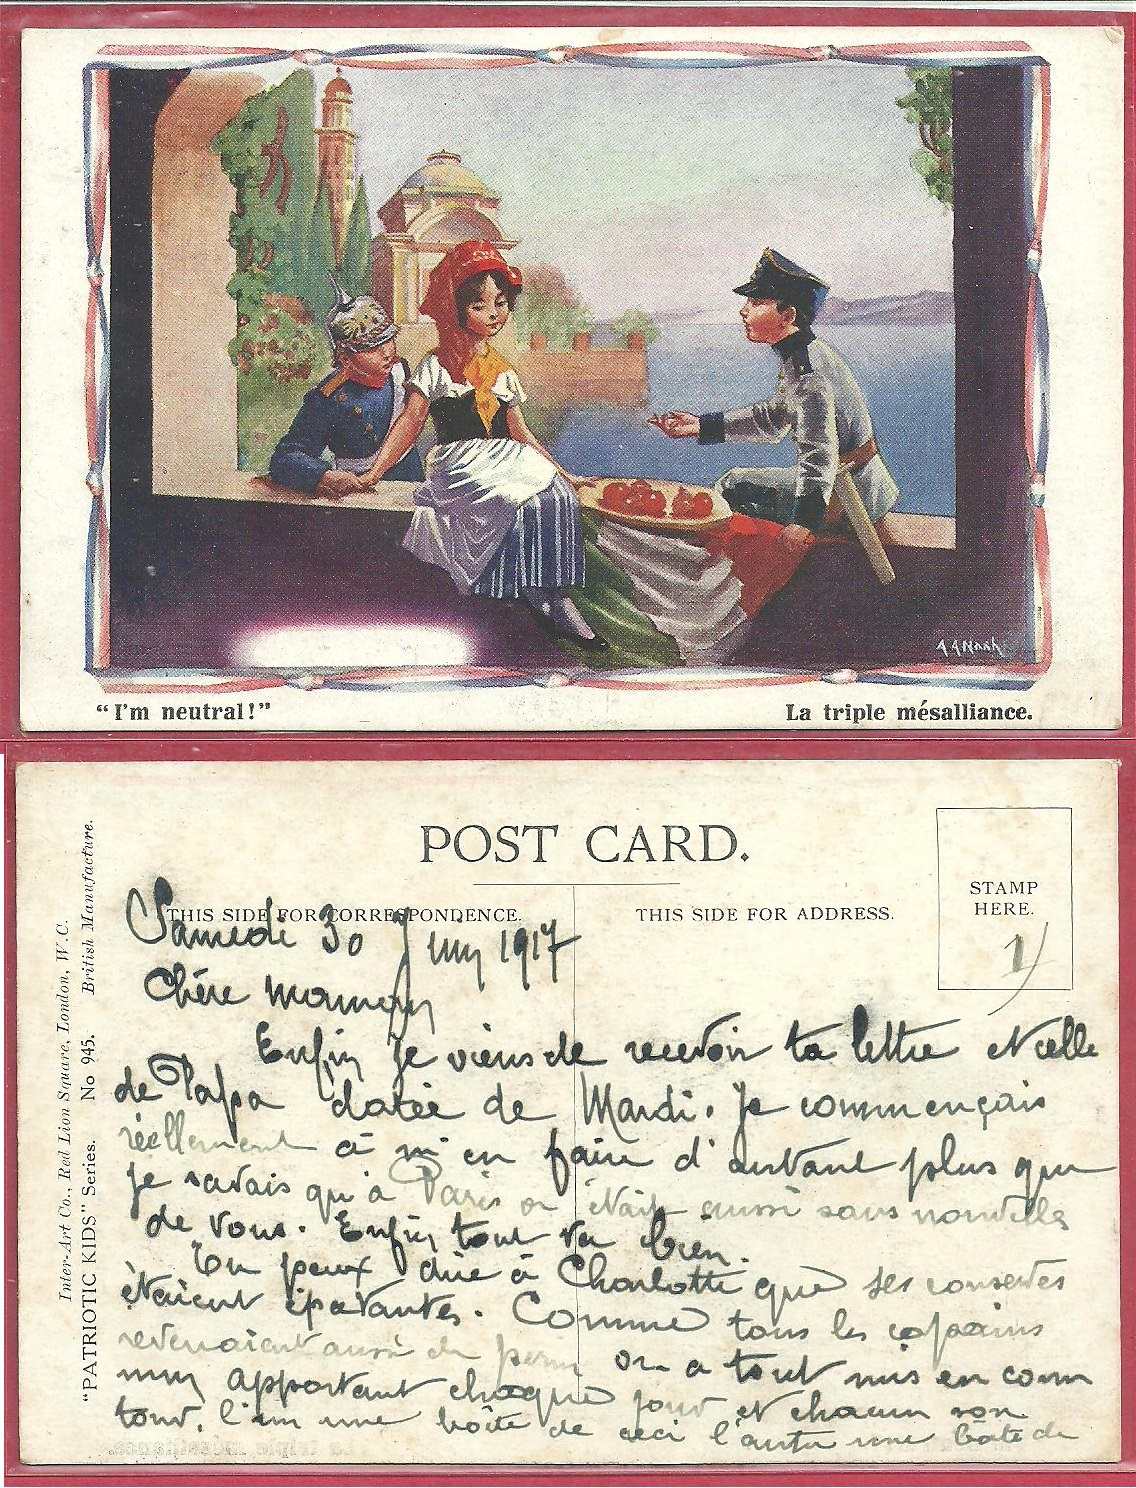 A A Nash
"I'm neutral!"
La triple mésalliance.
POST CARD.
THIS SIDE FOR CORRESPONDENCE.
THIS SIDE FOR ADDRESS.
STAMP
HERE.
1)
Inter-Art Co., Red Lion Square, London, W.C.
British Manufacture.
"PATRIOTIC KIDS" Series. No 945.
Samedi 30 Juin 1917
Chère maman
Enfin je viens de recevoir ta lettre et celle
de Papa datée de Mardi. Je commençais
réellement à m'en faire d'autant plus que
je savais qu'à Paris on était aussi sans nouvelles
de vous. Enfin tout va bien.
Tu peux dire à Charlotte que ses conserves
étaient épatantes. Comme tous les copains
revenaient aussi de perm on a tout mis en com
mun apportant chaque jour et chacun son
tour. l'un une boîte de ceci l'autre une boîte de